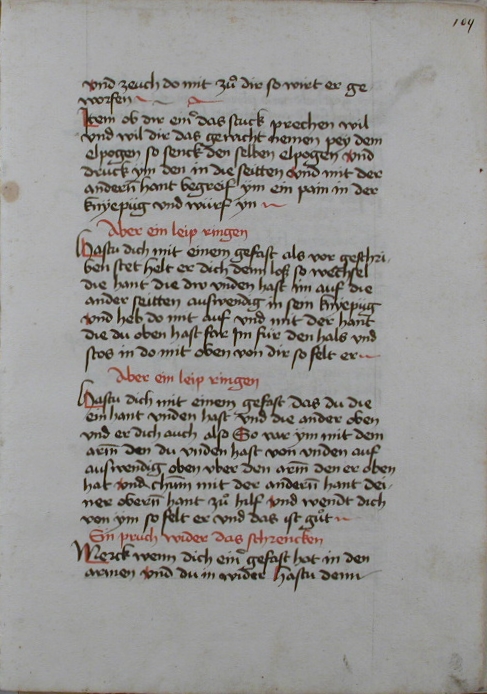 104
vnd zeuch do mit zů dir so wirt er ge
worfen
Item ob dir einˀ das stuck prechen wil
vnd wil dir das gewicht nemen pey dem
elpogen so senck den selben elpogen vnd
druck ym den in die seitten vnd mit der
andern̄ hant begreif ym ein pain in der
knyepüg vnd würf yn
Aber ein leip ringen
Hastu dich mit einem gefast als vor geschri-
ben stet helt er dich denn loß so wechsel
die hant die dw vnden hast im auf die
ander seitten auswendig in sein knyepüg
vnd heb do mit auf vnd mit der hant
die du oben hast far Im für den hals vnd
stos in do mit oben von dir so felt er
Aber ein leip ringen
Hastu dich mit einem gefast das du die
ein hant vnden hast vnd die ander oben
vnd er dich auch also So var ym mit dem
arm̄ den du vnden hast von vnden auf
auswendig oben vber den arm̄ den er oben
hat vnd chüm mit der andern̄ hant dei-
ner obern̄ hant zů hilf vnd wendt dich
von ym so felt er vnd das ist gůt
Ein pruch wider das schrencken
Merck wenn dich einˀ gefast hat in den
armen vnd du in wider hastu denn